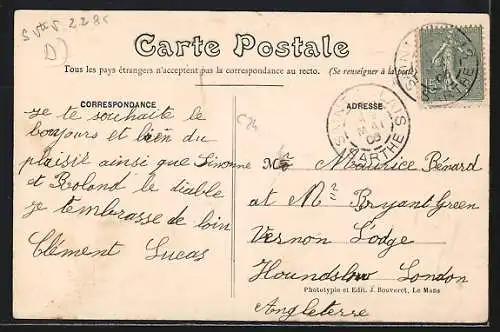 Carte Postale
Tous les pays étrangers n'acceptent pas la correspondance au recto. (Se renseigner à la poste)
CORRESPONDANCE
je te souhaite le
boujours et bien du
plaisir ainsi que
et Roland le diable
je tembrasse de loin
Clément Lucas
ADRESSE
MAI
SARTHE
Maurice Bénard
at Mr Bryant Green
Vernon Lodge
Hounslow London
Angleterre
Phototypie et Edit. J. Bouveret, Le Mans